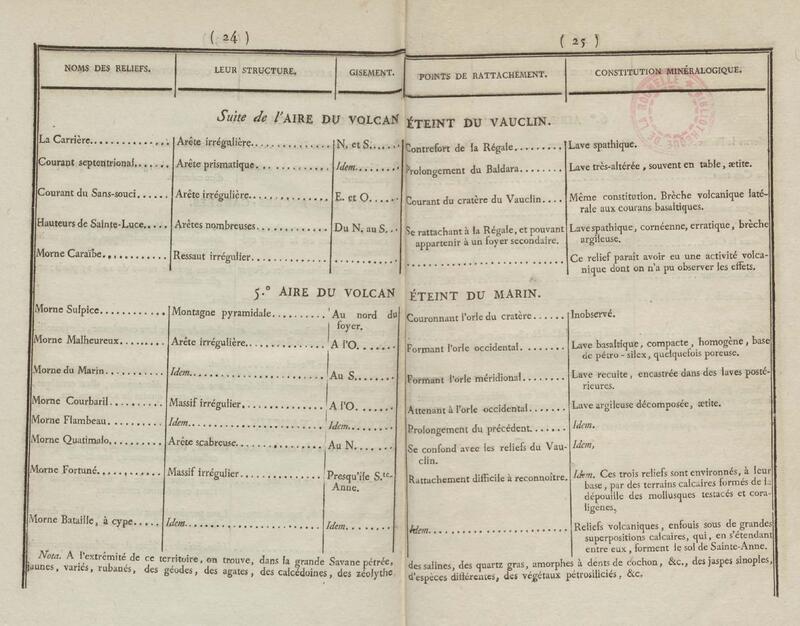 ( 24 )
( 25 )
NOMS DES RELIEFS. LEUR STRUCTURE. GISEMENT. POINTS DE RATTACHEMENT. CONSTITUTION MINÉRALOGIQUE.
Suite de l'AIRE DU VOLCAN ÉTEINT DU VAUCLIN.
La Carrière............ Arête irrégulière............ N. et S...... Contrefort de la Régale......... Lave spathique.
Courant septentrional...... Arête prismatique............ Idem........ Prolongement du Baldara........ Lave très-altérée, souvent en table, ætite.
Courant du Sans-souci...... Arête irrégulière............ E. et O..... Courant du cratère du Vauclin.... Même constitution. Brèche volcanique laté-
rale aux courans basaltiques.
Hauteurs de Sainte-Luce..... Arêtes nombreuses............ Du N. au S... Se rattachant à la Régale, et pouvant Lave spathique, cornéenne, erratique, brèche
appartenir à un foyer secondaire. argileuse.
Morne Caraïbe............ Ressaut irrégulier............ ............ ............ Ce relief paraît avoir eu une activité volca-
nique dont on n'a pu observer les effets.
5.º AIRE DU VOLCAN ÉTEINT DU MARIN.
Morne Sulpice............ Montagne pyramidale.......... Au nord du Couronnant l'orle du cratère...... Inobservé.
foyer.
Morne Malheureux......... Arête irrégulière............ A l'O....... Formant l'orle occidental........ Lave basaltique, compacte, homogène, base
de pétro-silex, quelquefois poreuse.
Morne du Marin........... Idem............ Au S........ Formant l'orle méridional........ Lave recuite, encastrée dans des laves posté-
rieures.
Morne Courbaril.......... Massif irrégulier............ A l'O....... Attenant à l'orle occidental....... Lave argileuse décomposée, ætite.
Morne Flambeau........... Idem............ Idem........ Prolongement du précédent....... Idem.
Morne Quatimalo.......... Arête scabreuse............ Au N........ Se confond avec les reliefs du Vau- Idem,
clin.
Morne Fortuné............ Massif irrégulier............ Presqu'île S.te- Rattachement difficile à reconnoître. Idem. Ces trois reliefs sont environnés, à leur
Anne. base, par des terrains calcaires formés de la
dépouille des mollusques testacés et cora-
ligènes,
Morne Bataille, à cype..... Idem............ Idem........ Idem............ Reliefs volcaniques, enfouis sous de grandes
superpositions calcaires, qui, en s'étendant
entre eux, forment le sol de Sainte-Anne.
Nota. A l'extrémité de ce territoire, on trouve, dans la grande Savane pétrée, des salines, des quartz gras, amorphes à dents de cochon, &c., des jaspes sinoples,
jaunes, variés, rubanés, des géodes, des agates, des calcédoines, des zéolythe d'espèces différentes, des végétaux pétrosiliciés, &c.